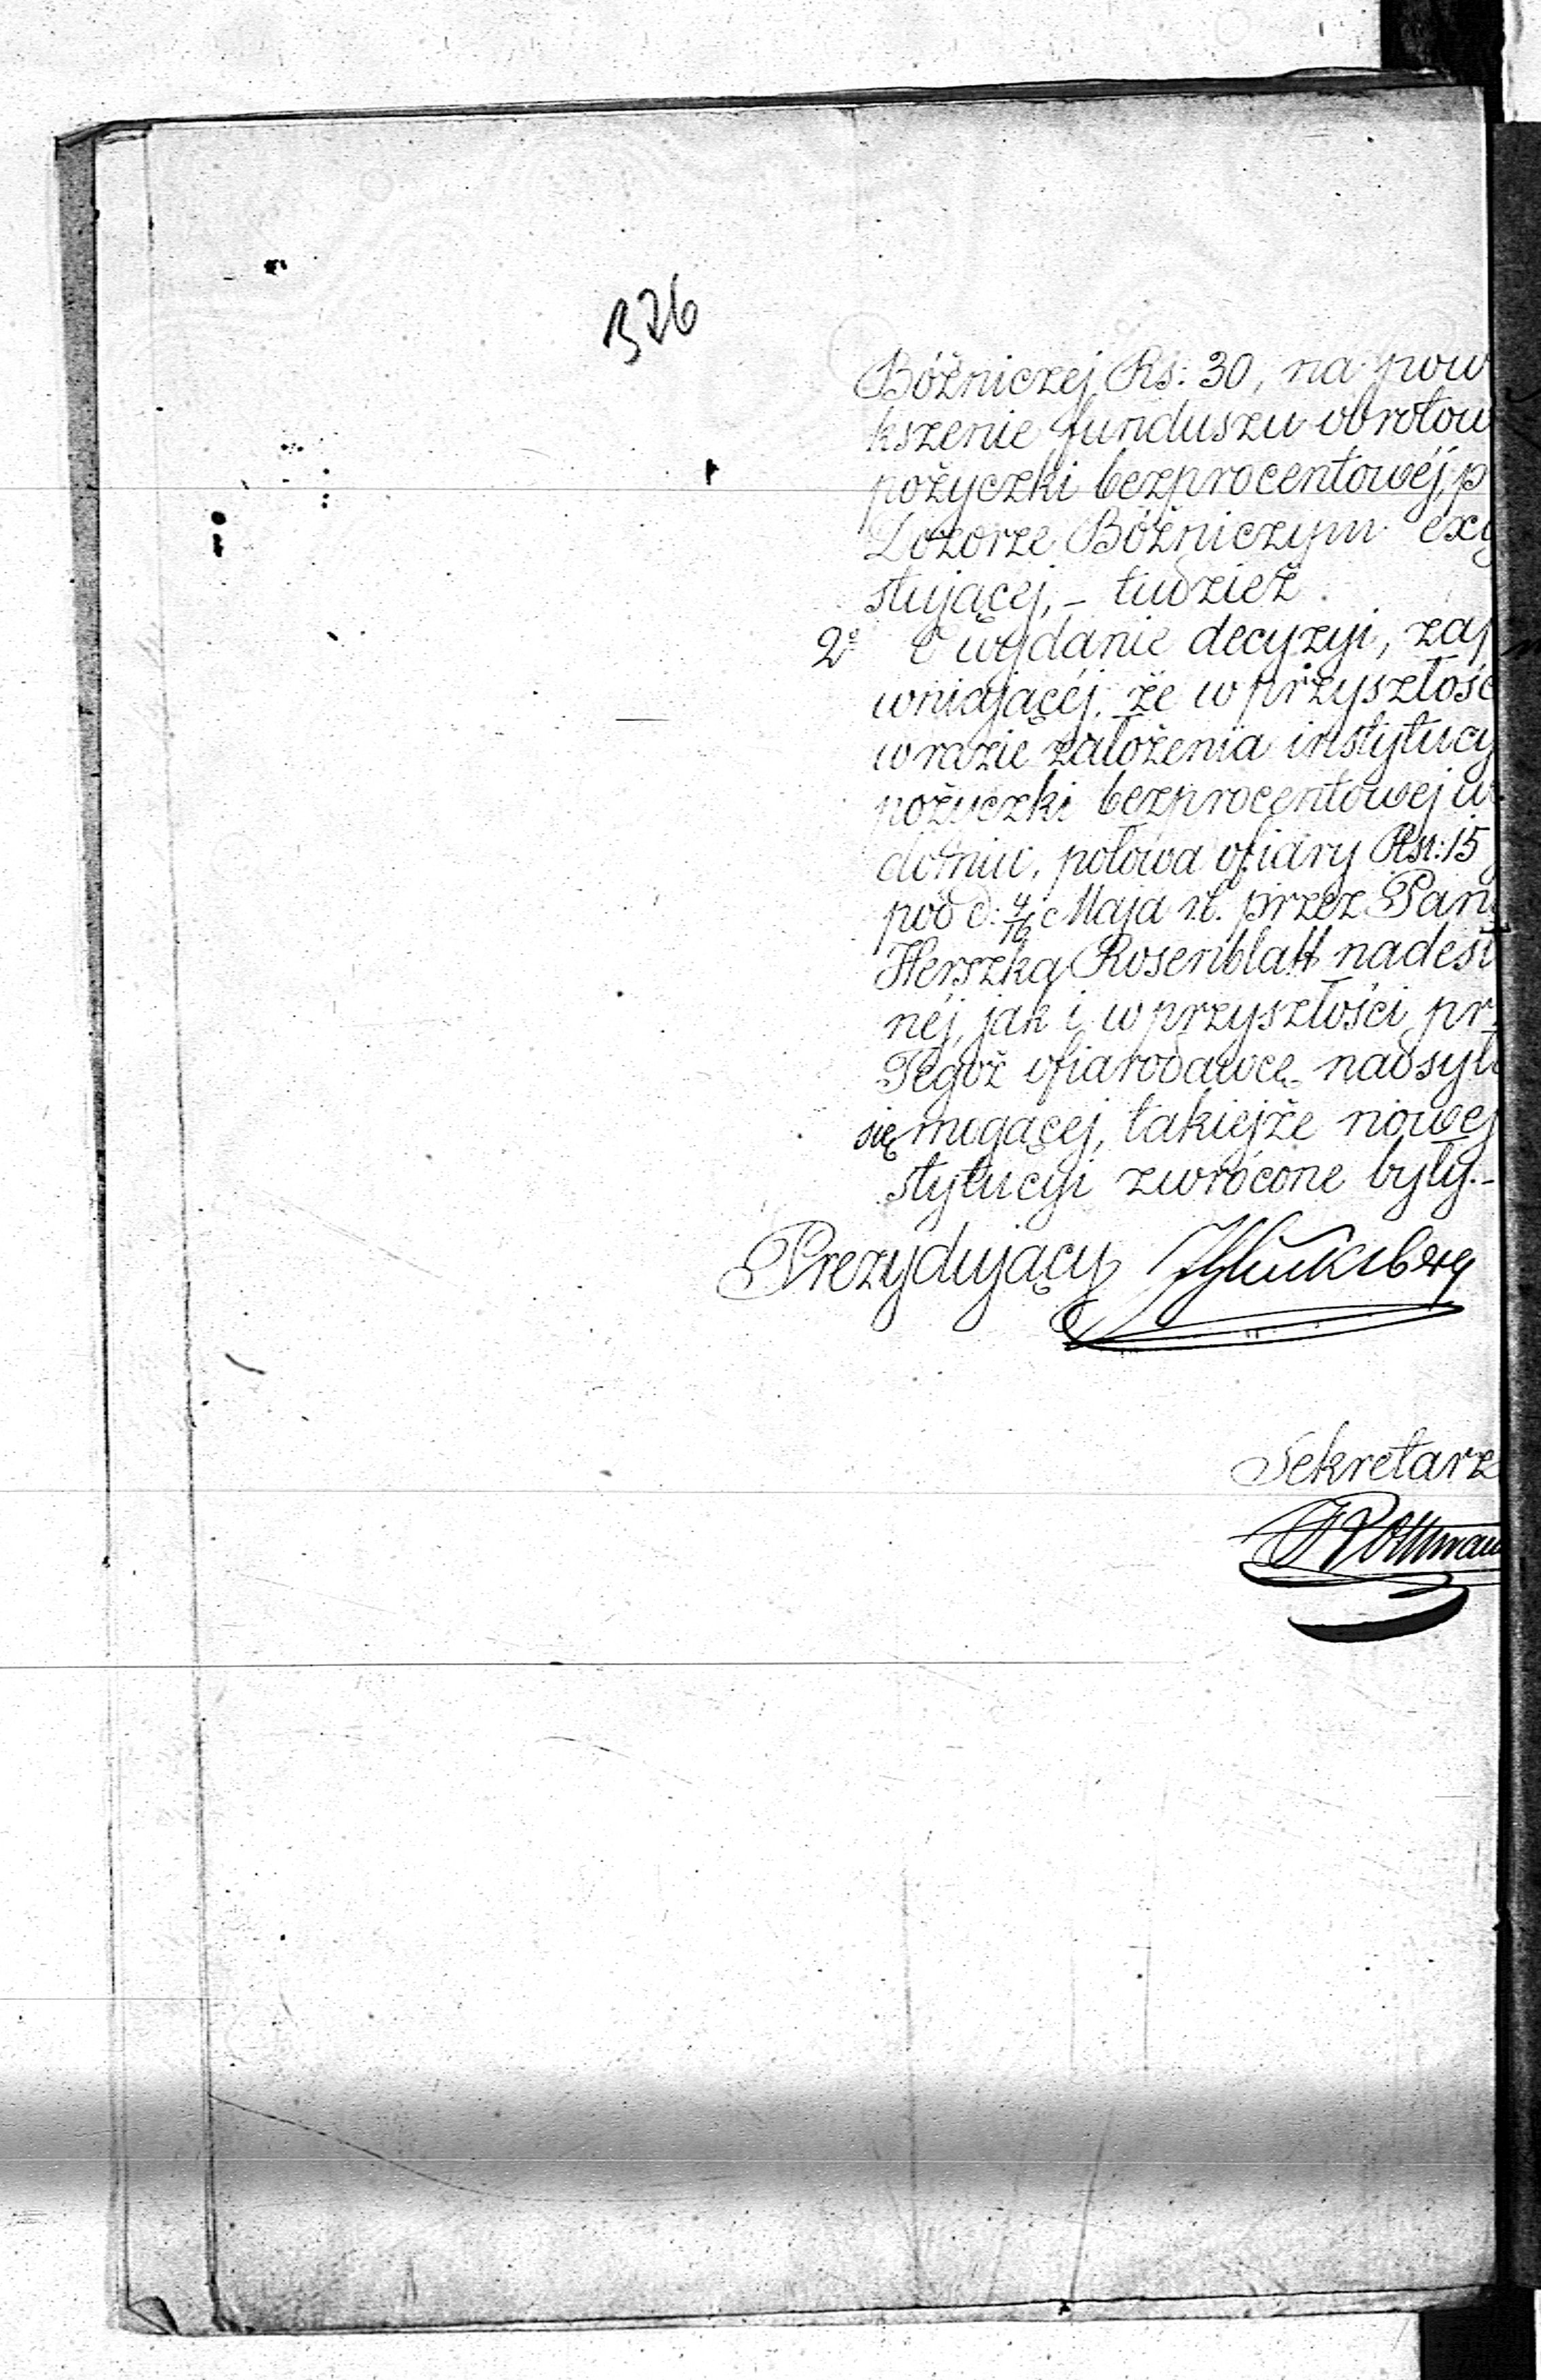 326
Bóżniczej Rs: 30, na pow
kszenie funduszu obrotow
pożyczki bezprocentowéj, p
Dozorze Bóżniczym exy
stującej, – tudzież
2º O wydanie decyzyi, zap
wniającéj, że w przyszłośc
w razie założenia instytucy
pożyczki bezprocentowej w
połowa ofiary Rsr: 15
pod d: 4/16 Maja r.b. przez Pan
Herszka Rosenblatt nadesł
néj, jak i w przyszłości pr
Tegoż ofiarodawcę nadsył
się mogącej, takiejże nowej
stytucyi zwrócone były. –
Prezydujący
Sekretarz